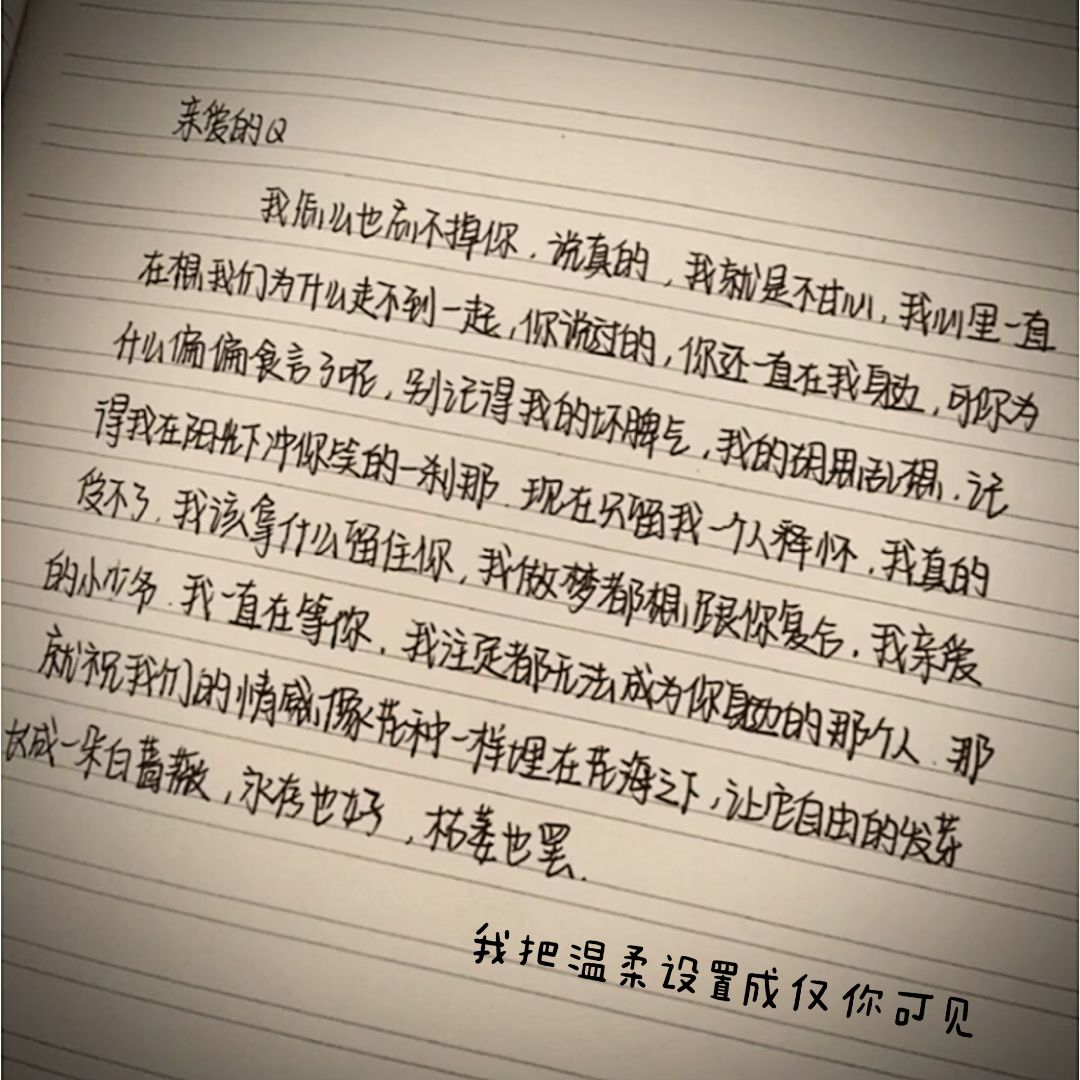 亲爱的Q
我怎么也忘不掉你.说真的,我就是不甘心,我心里一直
在想我们为什么走不到一起,你说过的,你还一直在我身边,可你为
什么偏偏食言了呢,别记得我的坏脾气,我的胡思乱想.记
得我在阳光下冲你笑的一刹那.现在只留我一个人释怀.我真的
受不了.我该拿什么留住你,我做梦都想跟你复合.我亲爱
的小少爷.我一直在等你.我注定都无法成为你身边的那个人.那
就祝我们的情感像花种一样埋在花海之下,让它自由的发芽
长成一朵白蔷薇,永存也好,枯萎也罢.
我把温柔设置成仅你可见